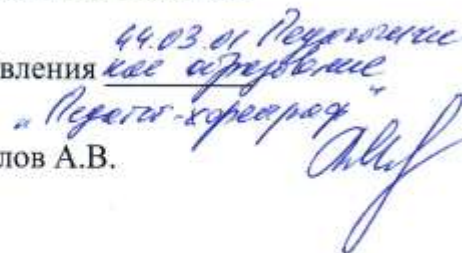 44.03.01 Педагогичес
вления кое образование
"Педагог-хореограф"
лов А.В.